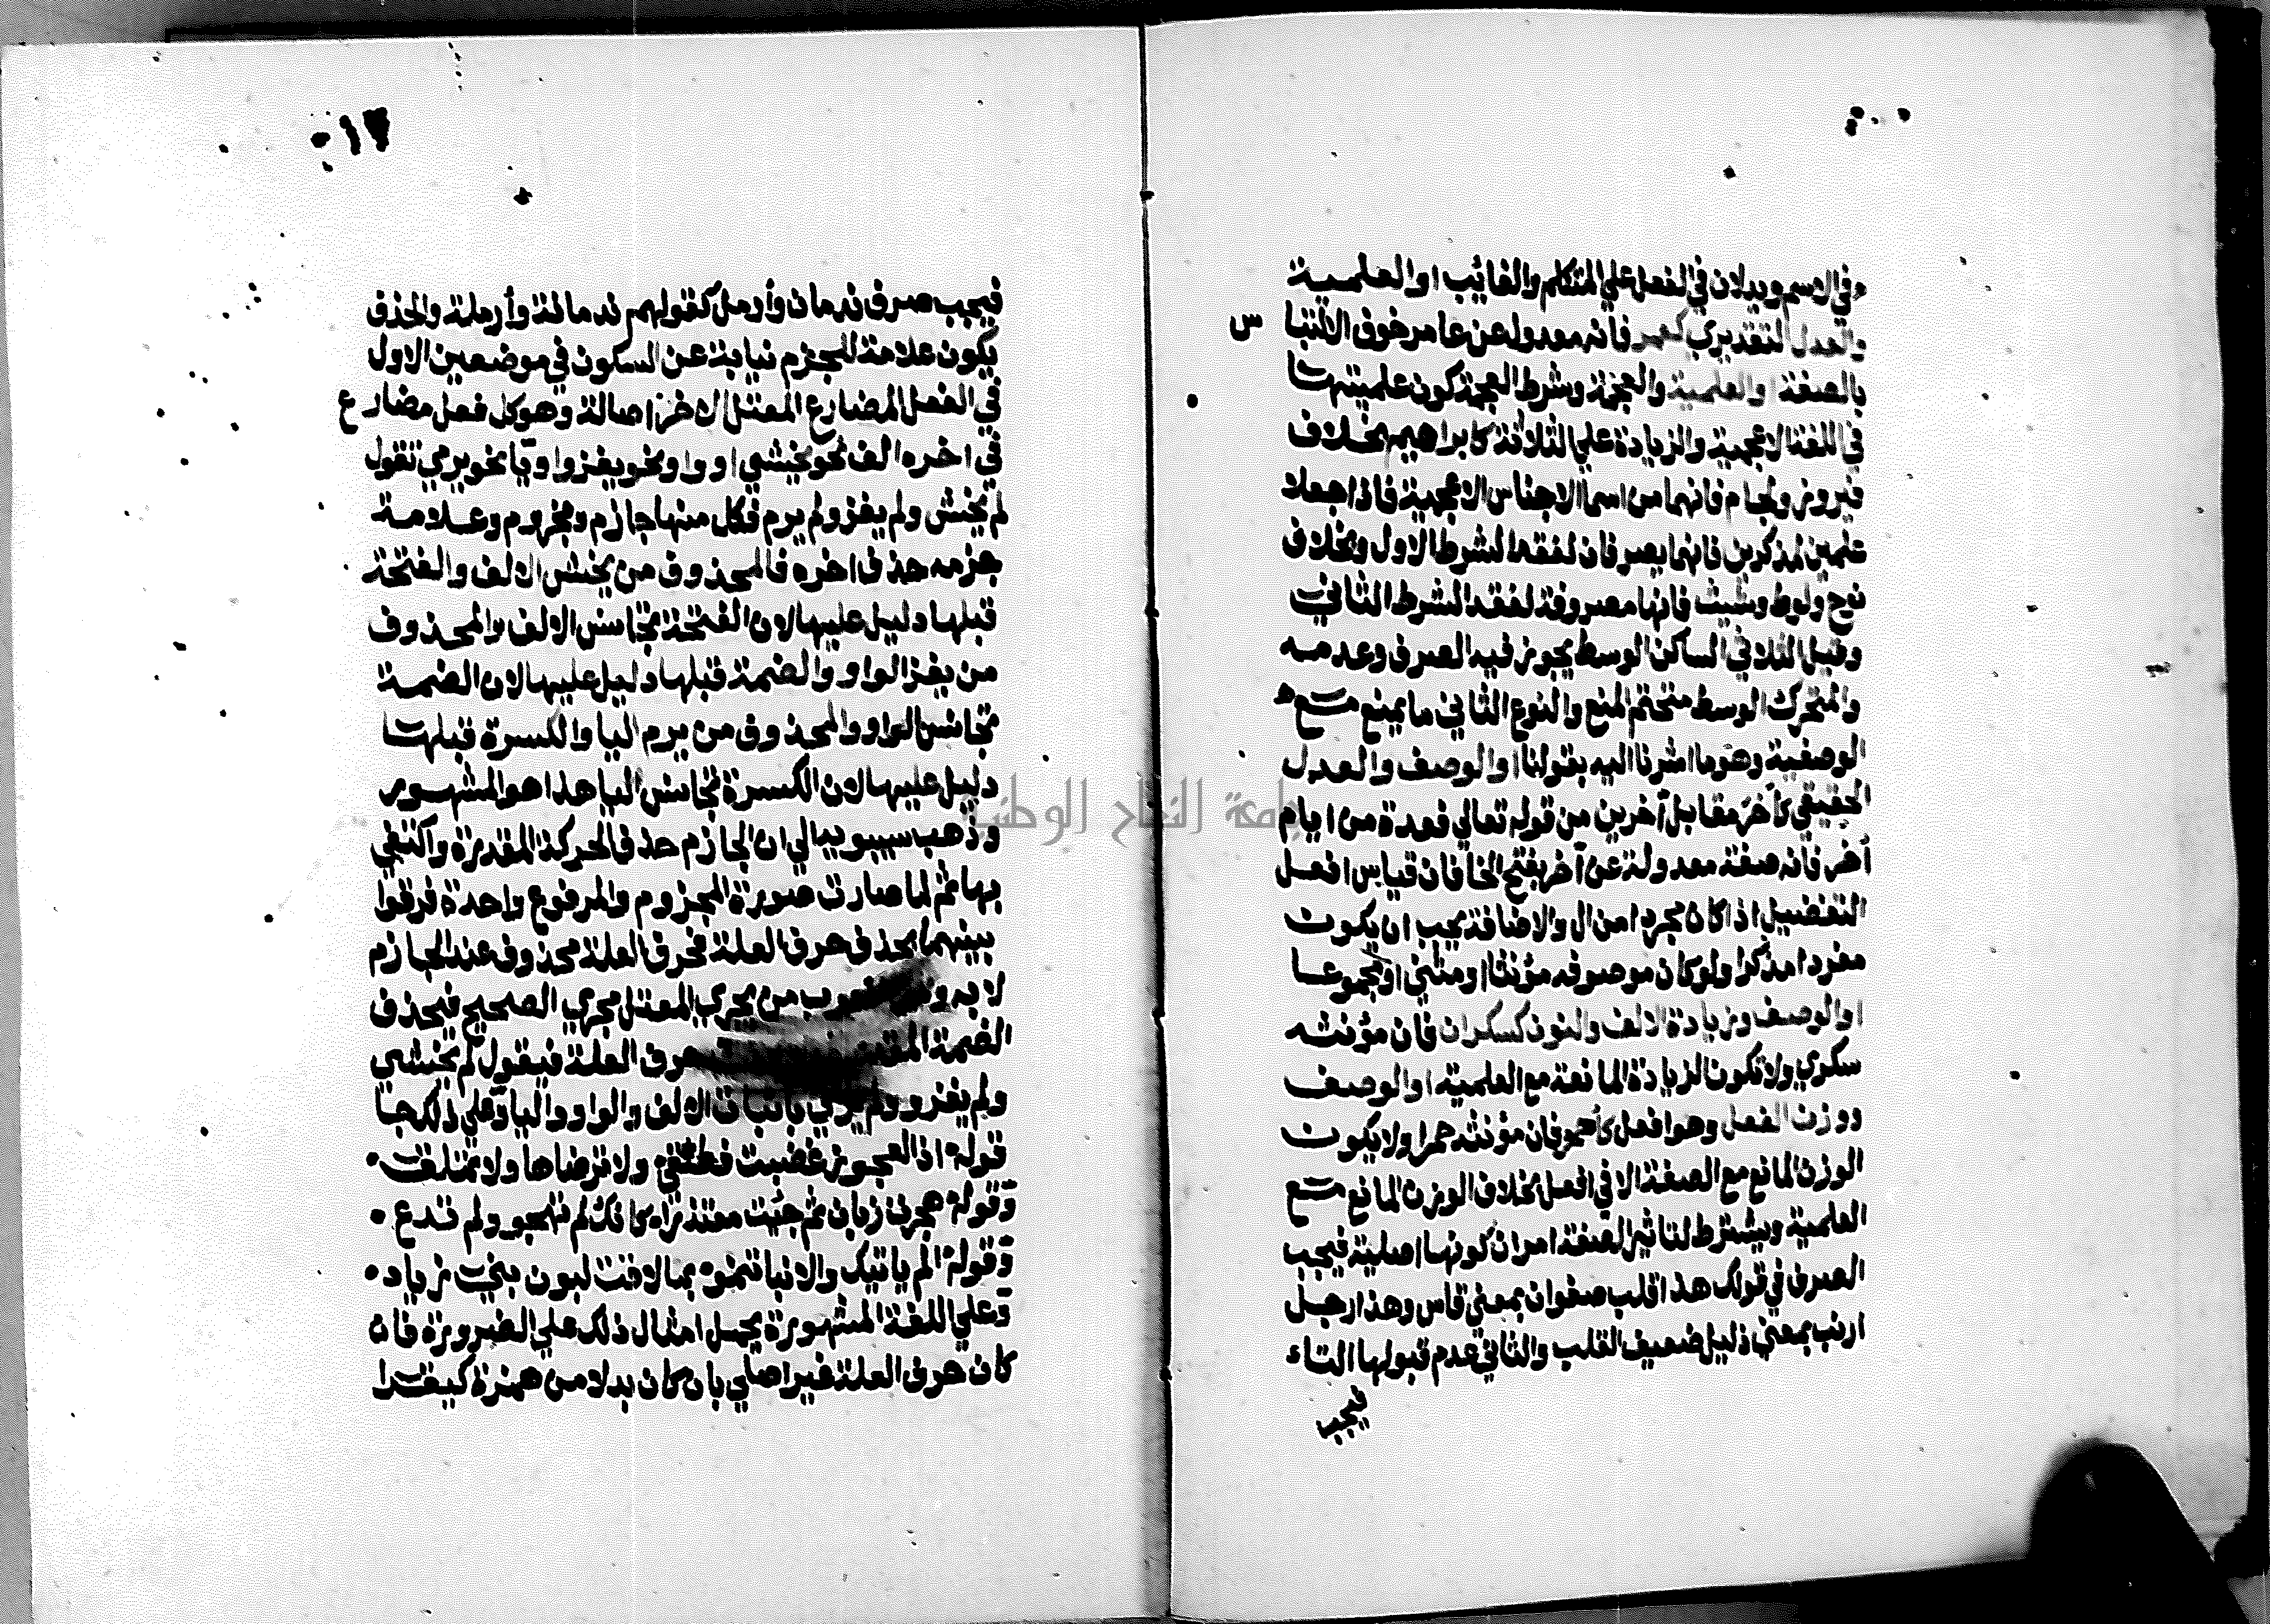 في الاسم ويدلان في الفعل علي المتكلم والغائب او العلمية
والعدل التقديري كعمر فانه معدول عن عامر خوف الالتبا س
بالصفة او العلمية والعجمة وشرط العجمة كون علميتها
في اللغة الاعجمية والزيادة علي الثلاثة كابراهيم بخلاف
فيروز ولجام فانهما من اسما الاجناس الاعجمية فاذا جعلا
علمين لمذكرين فانهما يصرفان لفقد الشرط الاول وبخلاف
نوح ولوط وشيث فانها مصروفة لفقد الشرط الثاني
وقيل الثلاثي الساكن الوسط يجوز فيه الصرف وعدمه
والمتحرك الوسط متحتم المنع والنوع الثاني ما يمنع مع
الوصفية وهو ما اشرنا اليه بقولنا او الوصف والعدل
الحقيقي كأخر مقابل آخرين من قوله تعالي فعدة من ايام
أخر فانه صفة معدولة عن آخر بفتح الخا فان قياس افعل
التفضيل اذا كان مجردا من ال والاضافة يجب ان يكون
مفردا مذكرا ولو كان موصوفه مؤنثا او مثني او مجموعا
او الوصف وزيادة الالف والنون كسكران فان مؤنثه
سكري ولا تكون الزيادة المانعة مع العلمية او الوصف
ووزن الفعل وهو افعل كأحمر فان مؤنثه حمرا ولا يكون
الوزن المانع مع الصفة الا في افعل بخلاف الوزن المانع مع
العلمية ويشترط لتاثير الصفة امران كونها اصلية فيجب
الصرف في قولك هذا قلب صفوان بمعني قاس وهذا رجل
ارنب بمعني ذليل ضعيف القلب والثاني عدم قبولها التاء
فيجب
١٧
فيجب صرف ندمان وأرمل كقولهم ندمانة وأرملة والحذف
يكون علامة للجزم نيابة عن السكون في موضعين الاول
في الفعل المضارع المعتل الاخر اصالة وهو كل فعل مضارع
في اخره الف نحو يخشي او واو نحو يغزوا ويا نحو يرمي تقول
لم يخش ولم يغز ولم يرم فكل منها جازم ومجزوم وعلامة
جزمه حذف اخره فالمحذوف من يخش الالف والفتحة
قبلها دليل عليها لان الفتحة تجانس الالف والمحذوف
من يغز الواو والضمة قبلها دليل عليها لان الضمة
تجانس الواو والمحذوف من يرم اليا والكسرة قبلها
دليل عليها لان الكسرة تجانس اليا هذا هو المشهور
وذهب سيبويه الي ان الجازم حذف الحركة المقدرة واكتفي
بها ثم لما صارت صورة المجزوم والمرفوع واحدة فرقوا
بينهما بحذف حرف العلة فحرف العلة محذوف عند الجازم
لا به من يجري المعتل مجري الصحيح فيحذف
الضمة حرف العلة فيقول لم يخشي
ولم يغزو ولم يرمي باثبات الالف والواو واليا وعلي ذلك جا
قوله اذا العجوز غضبت فطلق ولا ترضاها ولا تملق
وقوله هجوت زبان ثم جئت معتذرا كانك لم تهجو ولم تدع
وقوله الم ياتيك والانبا تنمي بما لاقت لبون بني زياد
وعلي اللغة المشهورة يحمل امثال ذلك علي الضرورة فان
كان حرف العلة غير اصلي بان كان بدلا من همزة كيقرا
جامعة النجاح الوطنية